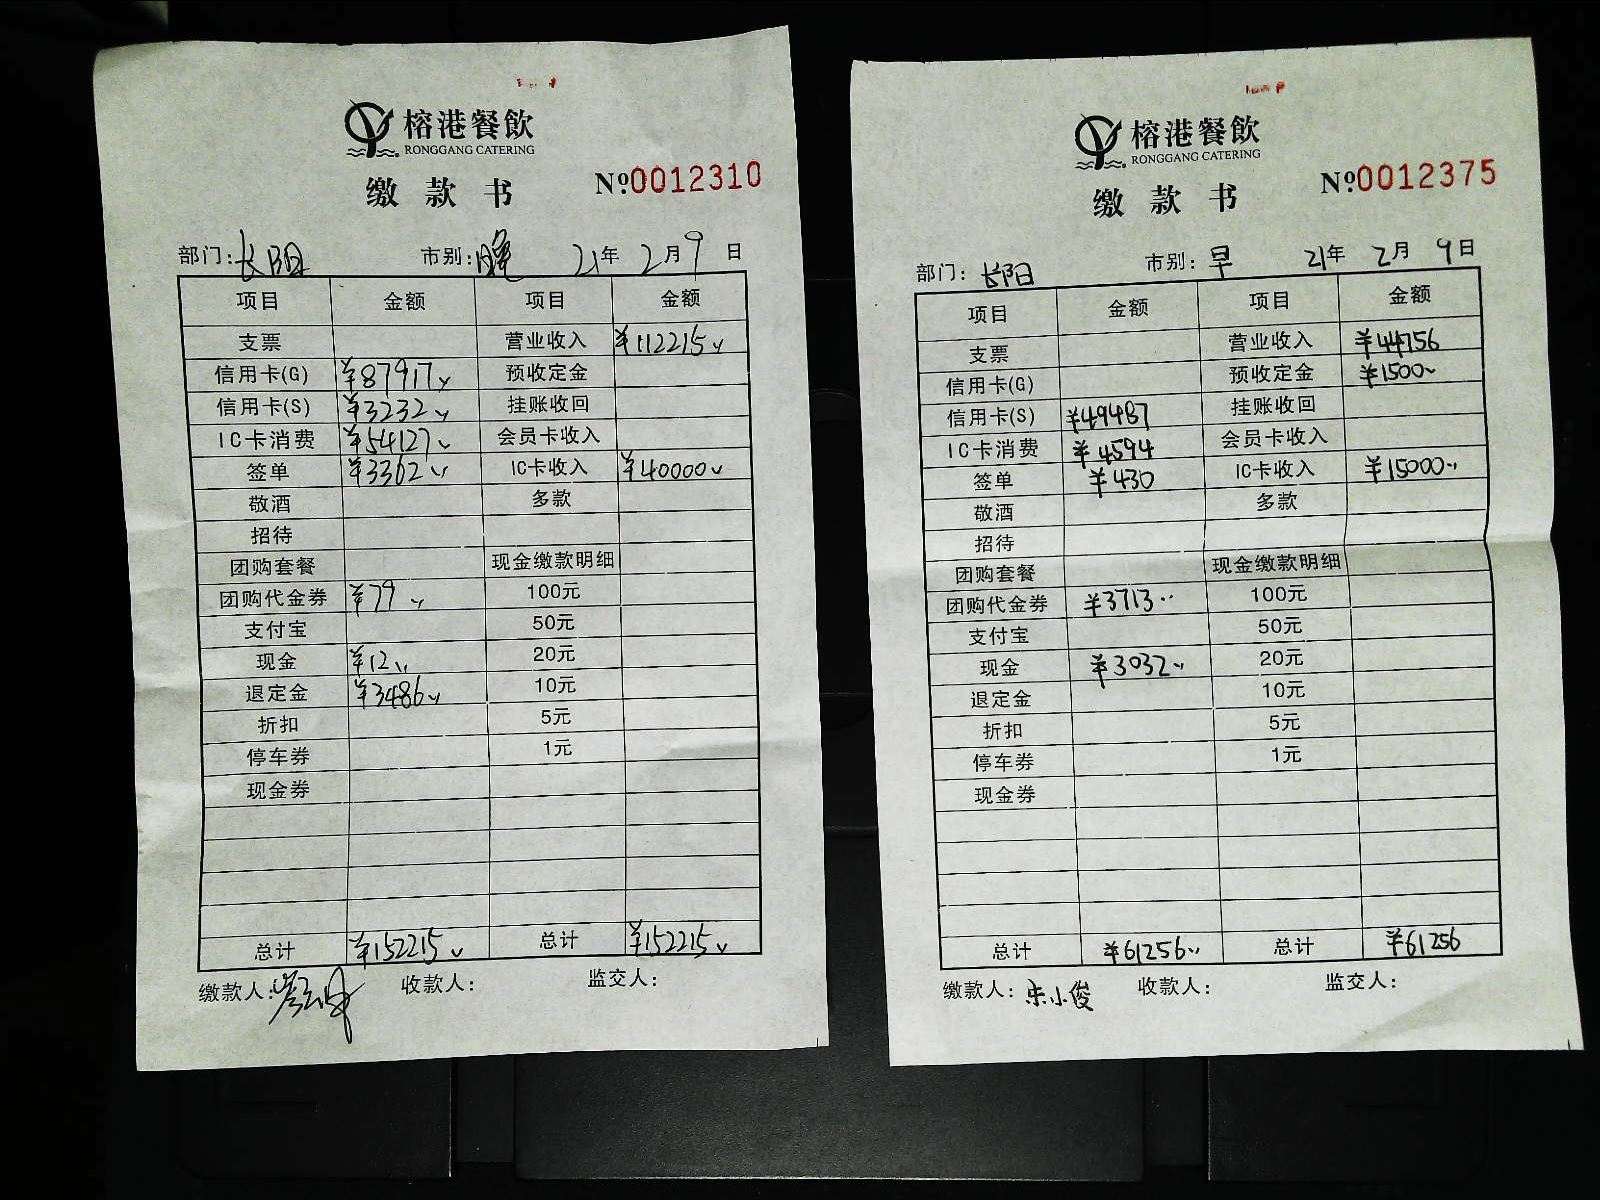 榕港餐飲
RONGGANG CATERING
缴款书
№0012310
部门：长阳 市别：晚 21年2月9日
项目 金额 项目 金额
支票 营业收入 ¥112215
信用卡(G) ¥87917 预收定金
信用卡(S) ¥3232 挂账收回
IC卡消费 ¥54127 会员卡收入
签单 ¥3362 IC卡收入 ¥40000
敬酒 多款
招待
团购套餐 现金缴款明细
团购代金券 ¥79 100元
支付宝 50元
现金 ¥12 20元
退定金 ¥3486 10元
折扣 5元
停车券 1元
现金券
总计 ¥152215 总计 ¥152215
缴款人： 收款人： 监交人：
榕港餐飲
RONGGANG CATERING
缴款书
№0012375
部门：长阳 市别：早 21年2月9日
项目 金额 项目 金额
支票 营业收入 ¥44756
信用卡(G) 预收定金 ¥1500
信用卡(S) ¥49487 挂账收回
IC卡消费 ¥4594 会员卡收入
签单 ¥430 IC卡收入 ¥15000
敬酒 多款
招待
团购套餐 现金缴款明细
团购代金券 ¥3713 100元
支付宝 50元
现金 ¥3032 20元
退定金 10元
折扣 5元
停车券 1元
现金券
总计 ¥61256 总计 ¥61256
缴款人：宋小俊 收款人： 监交人：